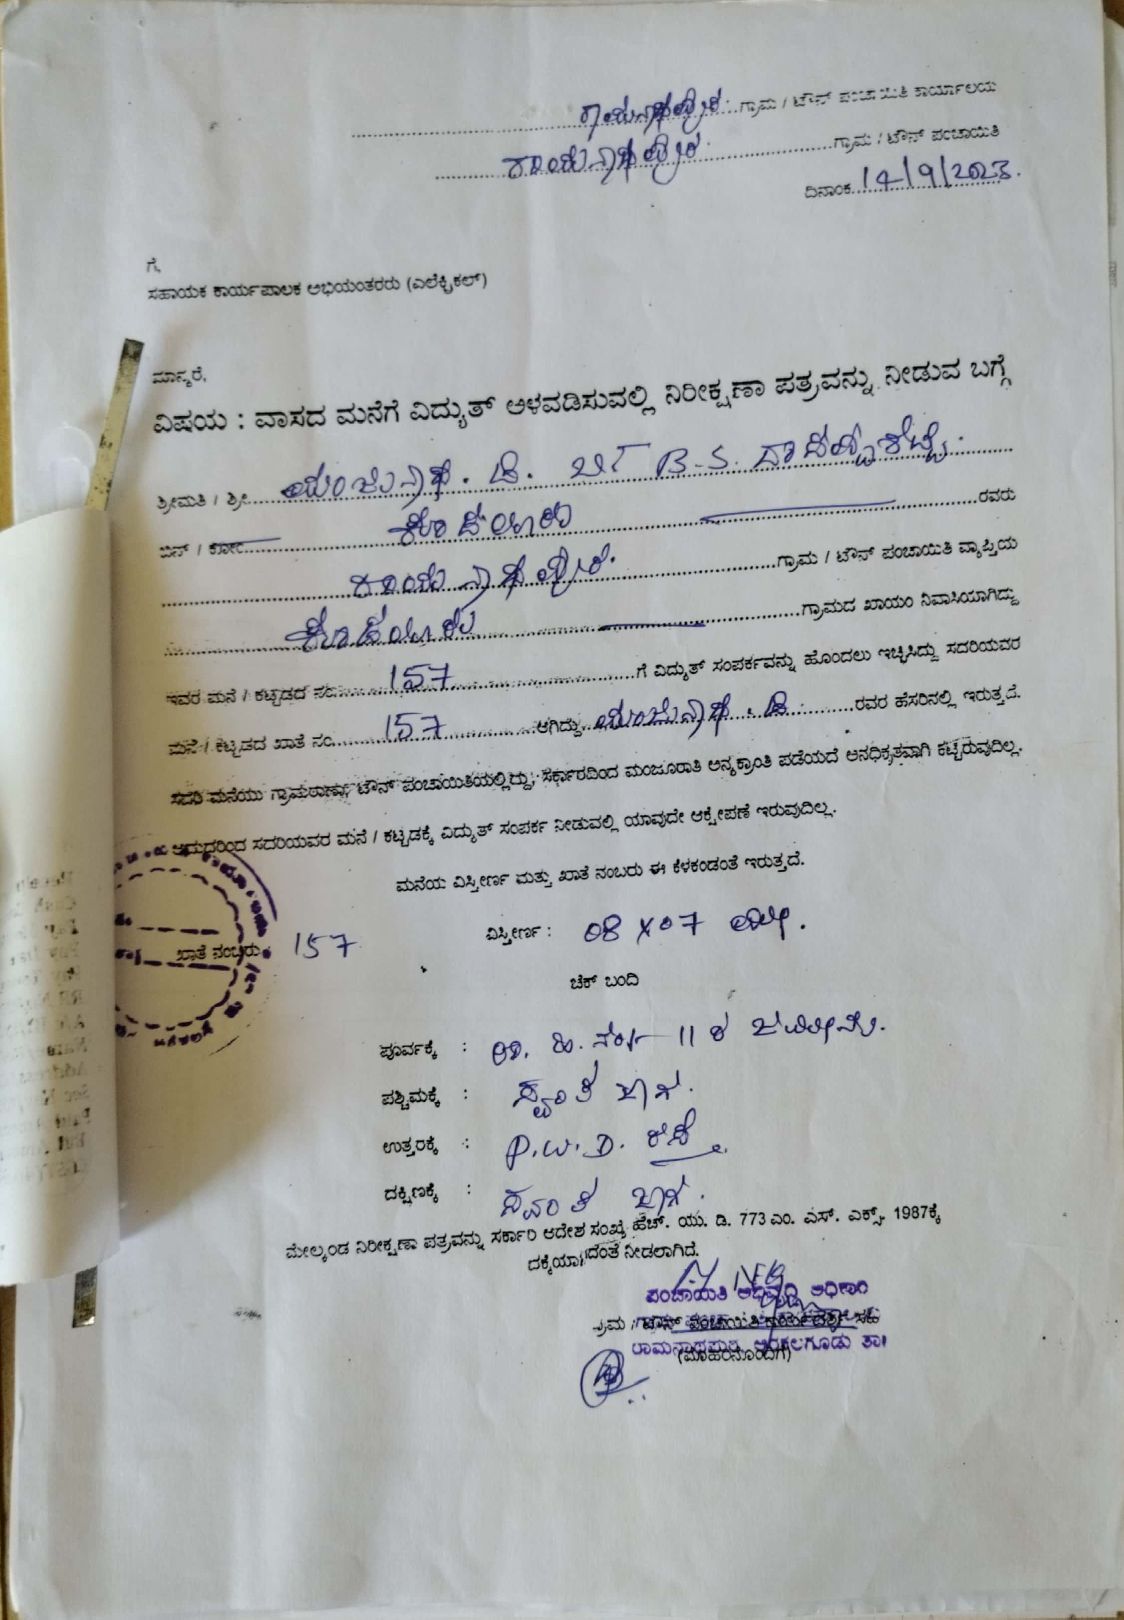 ರಾಮನಾಥಪುರ ಗ್ರಾಮ / ಟೌನ್ ಪಂಚಾಯಿತಿ ಕಾರ್ಯಾಲಯ
ರಾಮನಾಥಪುರ ಗ್ರಾಮ / ಟೌನ್ ಪಂಚಾಯಿತಿ
ದಿನಾಂಕ 14/9/2023.
ಗೆ,
ಸಹಾಯಕ ಕಾರ್ಯಪಾಲಕ ಅಭಿಯಂತರರು (ಎಲೆಕ್ಟ್ರಿಕಲ್)
ಮಾನ್ಯರೆ,
ವಿಷಯ : ವಾಸದ ಮನೆಗೆ ವಿದ್ಯುತ್ ಅಳವಡಿಸುವಲ್ಲಿ ನಿರೀಕ್ಷಣಾ ಪತ್ರವನ್ನು ನೀಡುವ ಬಗ್ಗೆ
ಶ್ರೀಮತಿ / ಶ್ರೀ ಮಂಜುನಾಥ. ಡಿ. B.S.
ಬಿನ್ / ಕೋಂ ರವರು
ರಾಮನಾಥಪುರ. ಗ್ರಾಮ / ಟೌನ್ ಪಂಚಾಯಿತಿ ವ್ಯಾಪ್ತಿಯ
ಗ್ರಾಮದ ಖಾಯಂ ನಿವಾಸಿಯಾಗಿದ್ದು
ಇವರ ಮನೆ / ಕಟ್ಟಡದ ನಂ 157 ಗೆ ವಿದ್ಯುತ್ ಸಂಪರ್ಕವನ್ನು ಹೊಂದಲು ಇಚ್ಛಿಸಿದ್ದು ಸದರಿಯವರ
ಮನೆ / ಕಟ್ಟಡದ ಖಾತೆ ನಂ 157 ಆಗಿದ್ದು ಮಂಜುನಾಥ. ಡಿ. ರವರ ಹೆಸರಿನಲ್ಲಿ ಇರುತ್ತದೆ.
ಸದರಿ ಮನೆಯು ಗ್ರಾಮಠಾಣಾ, ಟೌನ್ ಪಂಚಾಯಿತಿಯಲ್ಲಿದ್ದು, ಸರ್ಕಾರದಿಂದ ಮಂಜೂರಾತಿ ಅನ್ಯಕ್ರಾಂತಿ ಪಡೆಯದೆ ಅನಧಿಕೃತವಾಗಿ ಕಟ್ಟಿರುವುದಿಲ್ಲ.
ಆದುದರಿಂದ ಸದರಿಯವರ ಮನೆ / ಕಟ್ಟಡಕ್ಕೆ ವಿದ್ಯುತ್ ಸಂಪರ್ಕ ನೀಡುವಲ್ಲಿ ಯಾವುದೇ ಆಕ್ಷೇಪಣೆ ಇರುವುದಿಲ್ಲ.
ಮನೆಯ ವಿಸ್ತೀರ್ಣ ಮತ್ತು ಖಾತೆ ನಂಬರು ಈ ಕೆಳಕಂಡಂತೆ ಇರುತ್ತದೆ.
ಖಾತೆ ನಂಬರು : 157 ವಿಸ್ತೀರ್ಣ : 08 X 07 ಮೀ.
ಚೆಕ್ ಬಂದಿ
ಪೂರ್ವಕ್ಕೆ : 11 ರ ಜಮೀನು.
ಪಶ್ಚಿಮಕ್ಕೆ : ಸ್ವಂತ ಜಾಗ.
ಉತ್ತರಕ್ಕೆ : P.W.D. ರಸ್ತೆ
ದಕ್ಷಿಣಕ್ಕೆ : ಸ್ವಂತ ಜಾಗ.
ಮೇಲ್ಕಂಡ ನಿರೀಕ್ಷಣಾ ಪತ್ರವನ್ನು ಸರ್ಕಾರಿ ಆದೇಶ ಸಂಖ್ಯೆ ಹೆಚ್. ಯು. ಡಿ. 773 ಎಂ. ಎಸ್. ಎಕ್ಸ್. 1987ಕ್ಕೆ
ದಕ್ಕೆಯಾಗದಂತೆ ನೀಡಲಾಗಿದೆ.
ಪಂಚಾಯತಿ ಅಭಿವೃದ್ಧಿ ಅಧಿಕಾರಿ
ಗ್ರಾಮ / ಟೌನ್ ಪಂಚಾಯಿತಿ ಕಾರ್ಯದರ್ಶಿ ಸಹಿ
ರಾಮನಾಥಪುರ ಅರಕಲಗೂಡು ತಾ||
(ಮೊಹರಿನೊಂದಿಗೆ)